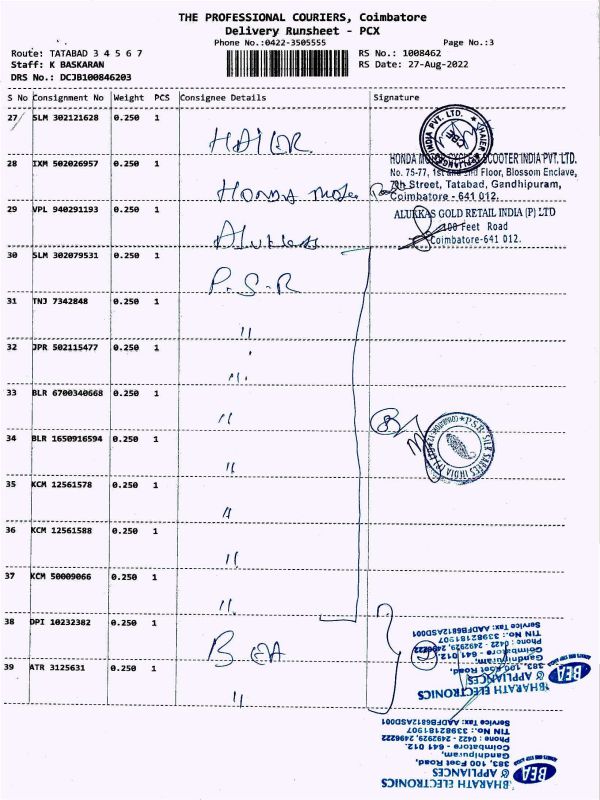 THE PROFESSIONAL COURIERS, Coimbatore
Delivery Runsheet - PCX
Phone No.:0422-3505555 Page No.:3
Route: TATABAD 3 4 5 6 7 RS No.: 1008462
Staff: K BASKARAN RS Date: 27-Aug-2022
DRS No.: DCJB100846203
S No Consignment No Weight PCS Consignee Details Signature
27 SLM 302121628 0.250 1
HAIER
HAIER APPLIANCES INDIA PVT. LTD.
CBE
28 IXM 502026957 0.250 1
HONDA Motor
HONDA MOTORCYCLE & SCOOTER INDIA PVT. LTD.
No. 75-77, 1st and 2nd Floor, Blossom Enclave,
7th Street, Tatabad, Gandhipuram,
Coimbatore - 641 012.
29 VPL 940291193 0.250 1
Alukkas
ALUKKAS GOLD RETAIL INDIA (P) LTD
100 Feet Road
Coimbatore-641 012.
30 SLM 302079531 0.250 1
P.S.R
31 TNJ 7342848 0.250 1
"
32 JPR 502115477 0.250 1
"
33 BLR 6700340668 0.250 1
"
8
P.S.R. SILK SAREES INDIA (P) LTD
34 BLR 1650916594 0.250 1
"
35 KCM 12561578 0.250 1
"
36 KCM 12561588 0.250 1
"
37 KCM 50009066 0.250 1
"
38 DPI 10232382 0.250 1
BEA
39 ATR 3125631 0.250 1
"
BHARATH ELECTRONICS
& APPLIANCES
383, 100 Feet Road,
Gandhipuram,
Coimbatore - 641 012.
Phone : 0422 - 2492929, 2496222
TIN No.: 33982181907
Service Tax: AADFB6812ASD001
BEA
BHARATH ELECTRONICS
& APPLIANCES
383, 100 Foot Road,
Gandhipuram,
Coimbatore - 641 012.
Phone : 0422 - 2492929, 2496222
TIN No.: 33982181907
Service Tax: AADFB6812ASD001
BEA